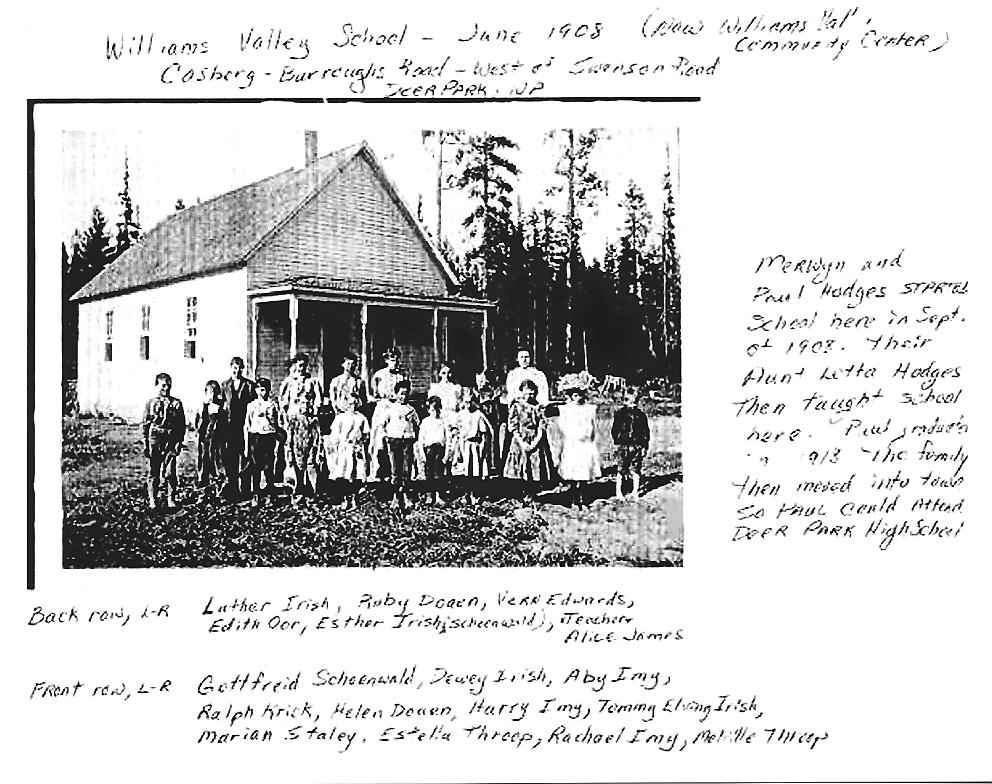 Williams Valley School - June 1908 (Now Williams Val'
Community Center)
Casberg-Burroughs Road - West of Swenson Road
Deer Park, WA
Merwyn and
Paul Hodges STARTED
School here in Sept.
of 1908. Their
Aunt Letta Hodges
Then taught School
here. Paul
in 1918 The family
then moved into town
So PAUL Could Attend
DEER PARK High School
Back row, L-R Luther Irish, Ruby Doaen, Vern Edwards,
Edith Oor, Esther Irish (Schoenwald), Teacher
Alice James
Front row, L-R Gottfreid Schoenwald, Dewey Irish, Aby Imy,
Ralph Krick, Helen Doaen, Harry Imy, Tommy Elving Irish,
Marian Staley, Estella Throop, Rachael Imy, Melville Throop